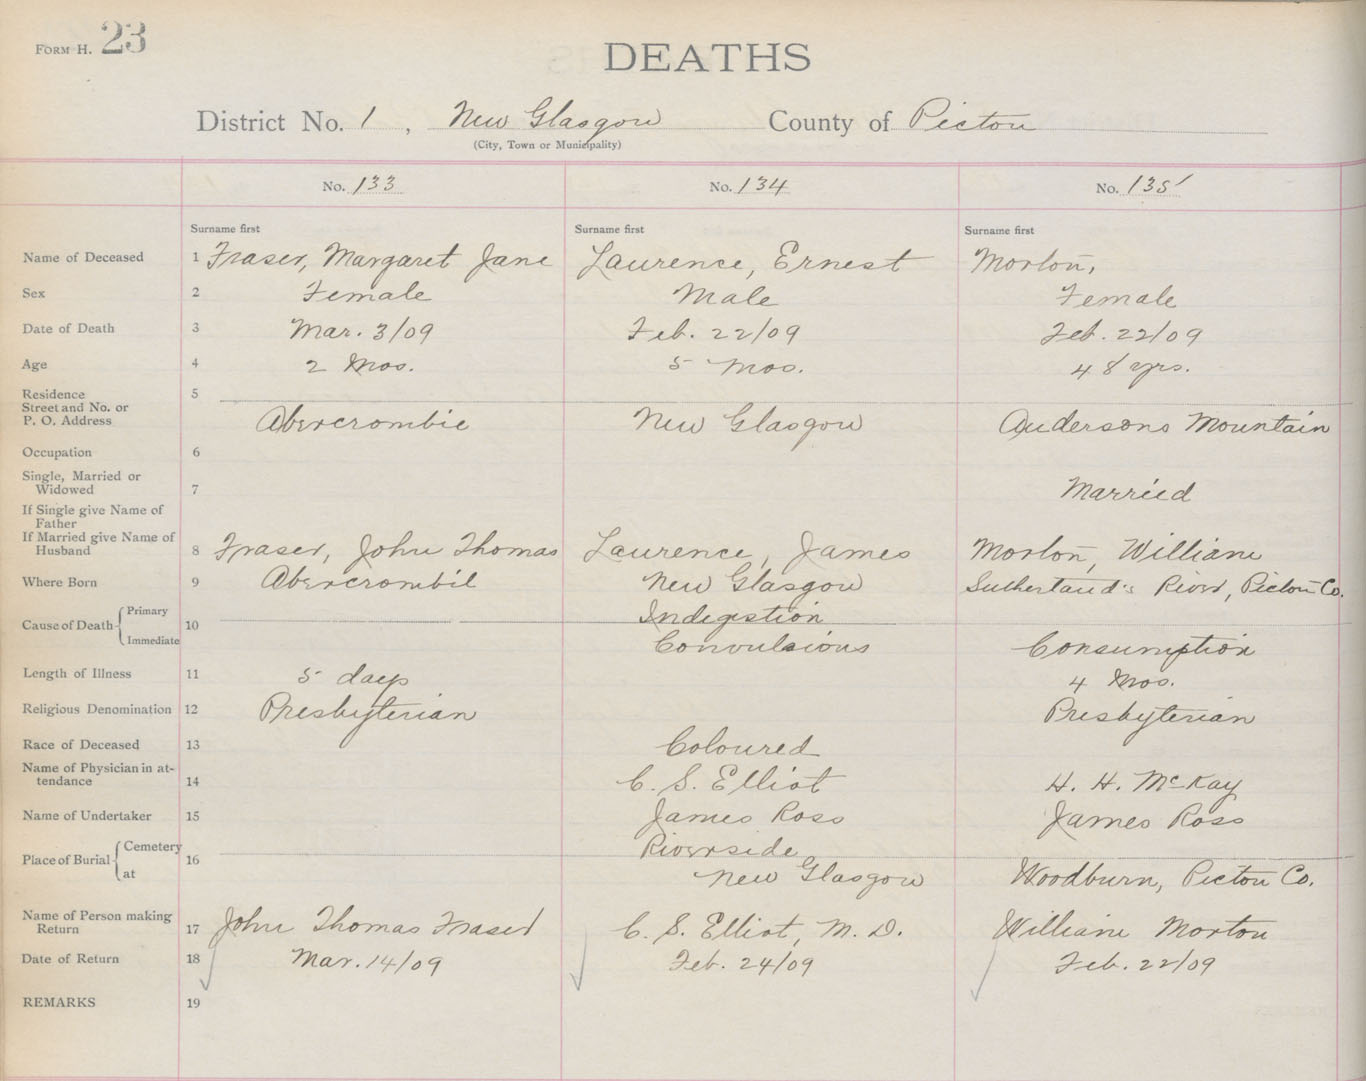 FORM H. 23
DEATHS
District No. 1, New Glasgow County of Pictou
(City, Town or Municipality)
No. 133 No. 134 No. 135
Surname first Surname first Surname first
Name of Deceased 1 Fraser, Margaret Jane Laurence, Ernest Morton,
Sex 2 Female Male Female
Date of Death 3 Mar. 3/09 Feb. 22/09 Feb. 22/09
Age 4 2 Mos. 5 Mos. 48 yrs.
Residence 5
Street and No. or
P. O. Address Abercrombie New Glasgow Andersons Mountain
Occupation 6
Single, Married or
Widowed 7 Married
If Single give Name of
Father
If Married give Name of
Husband 8 Fraser, John Thomas Laurence, James Morton, William
Where Born 9 Abercrombie New Glasgow Sutherland's River, Pictou Co.
Cause of Death Primary 10 Indigestion
Immediate Convulsions Consumption
Length of Illness 11 5 days 4 Mos.
Religious Denomination 12 Presbyterian Presbyterian
Race of Deceased 13 Coloured
Name of Physician in at-
tendance 14 C. S. Elliot H. H. McKay
Name of Undertaker 15 James Ross James Ross
Place of Burial Cemetery 16 Riverside
at New Glasgow Woodburn, Pictou Co.
Name of Person making
Return 17 John Thomas Fraser C. S. Elliot, M. D. William Morton
Date of Return 18 Mar. 14/09 Feb. 24/09 Feb. 22/09
REMARKS 19